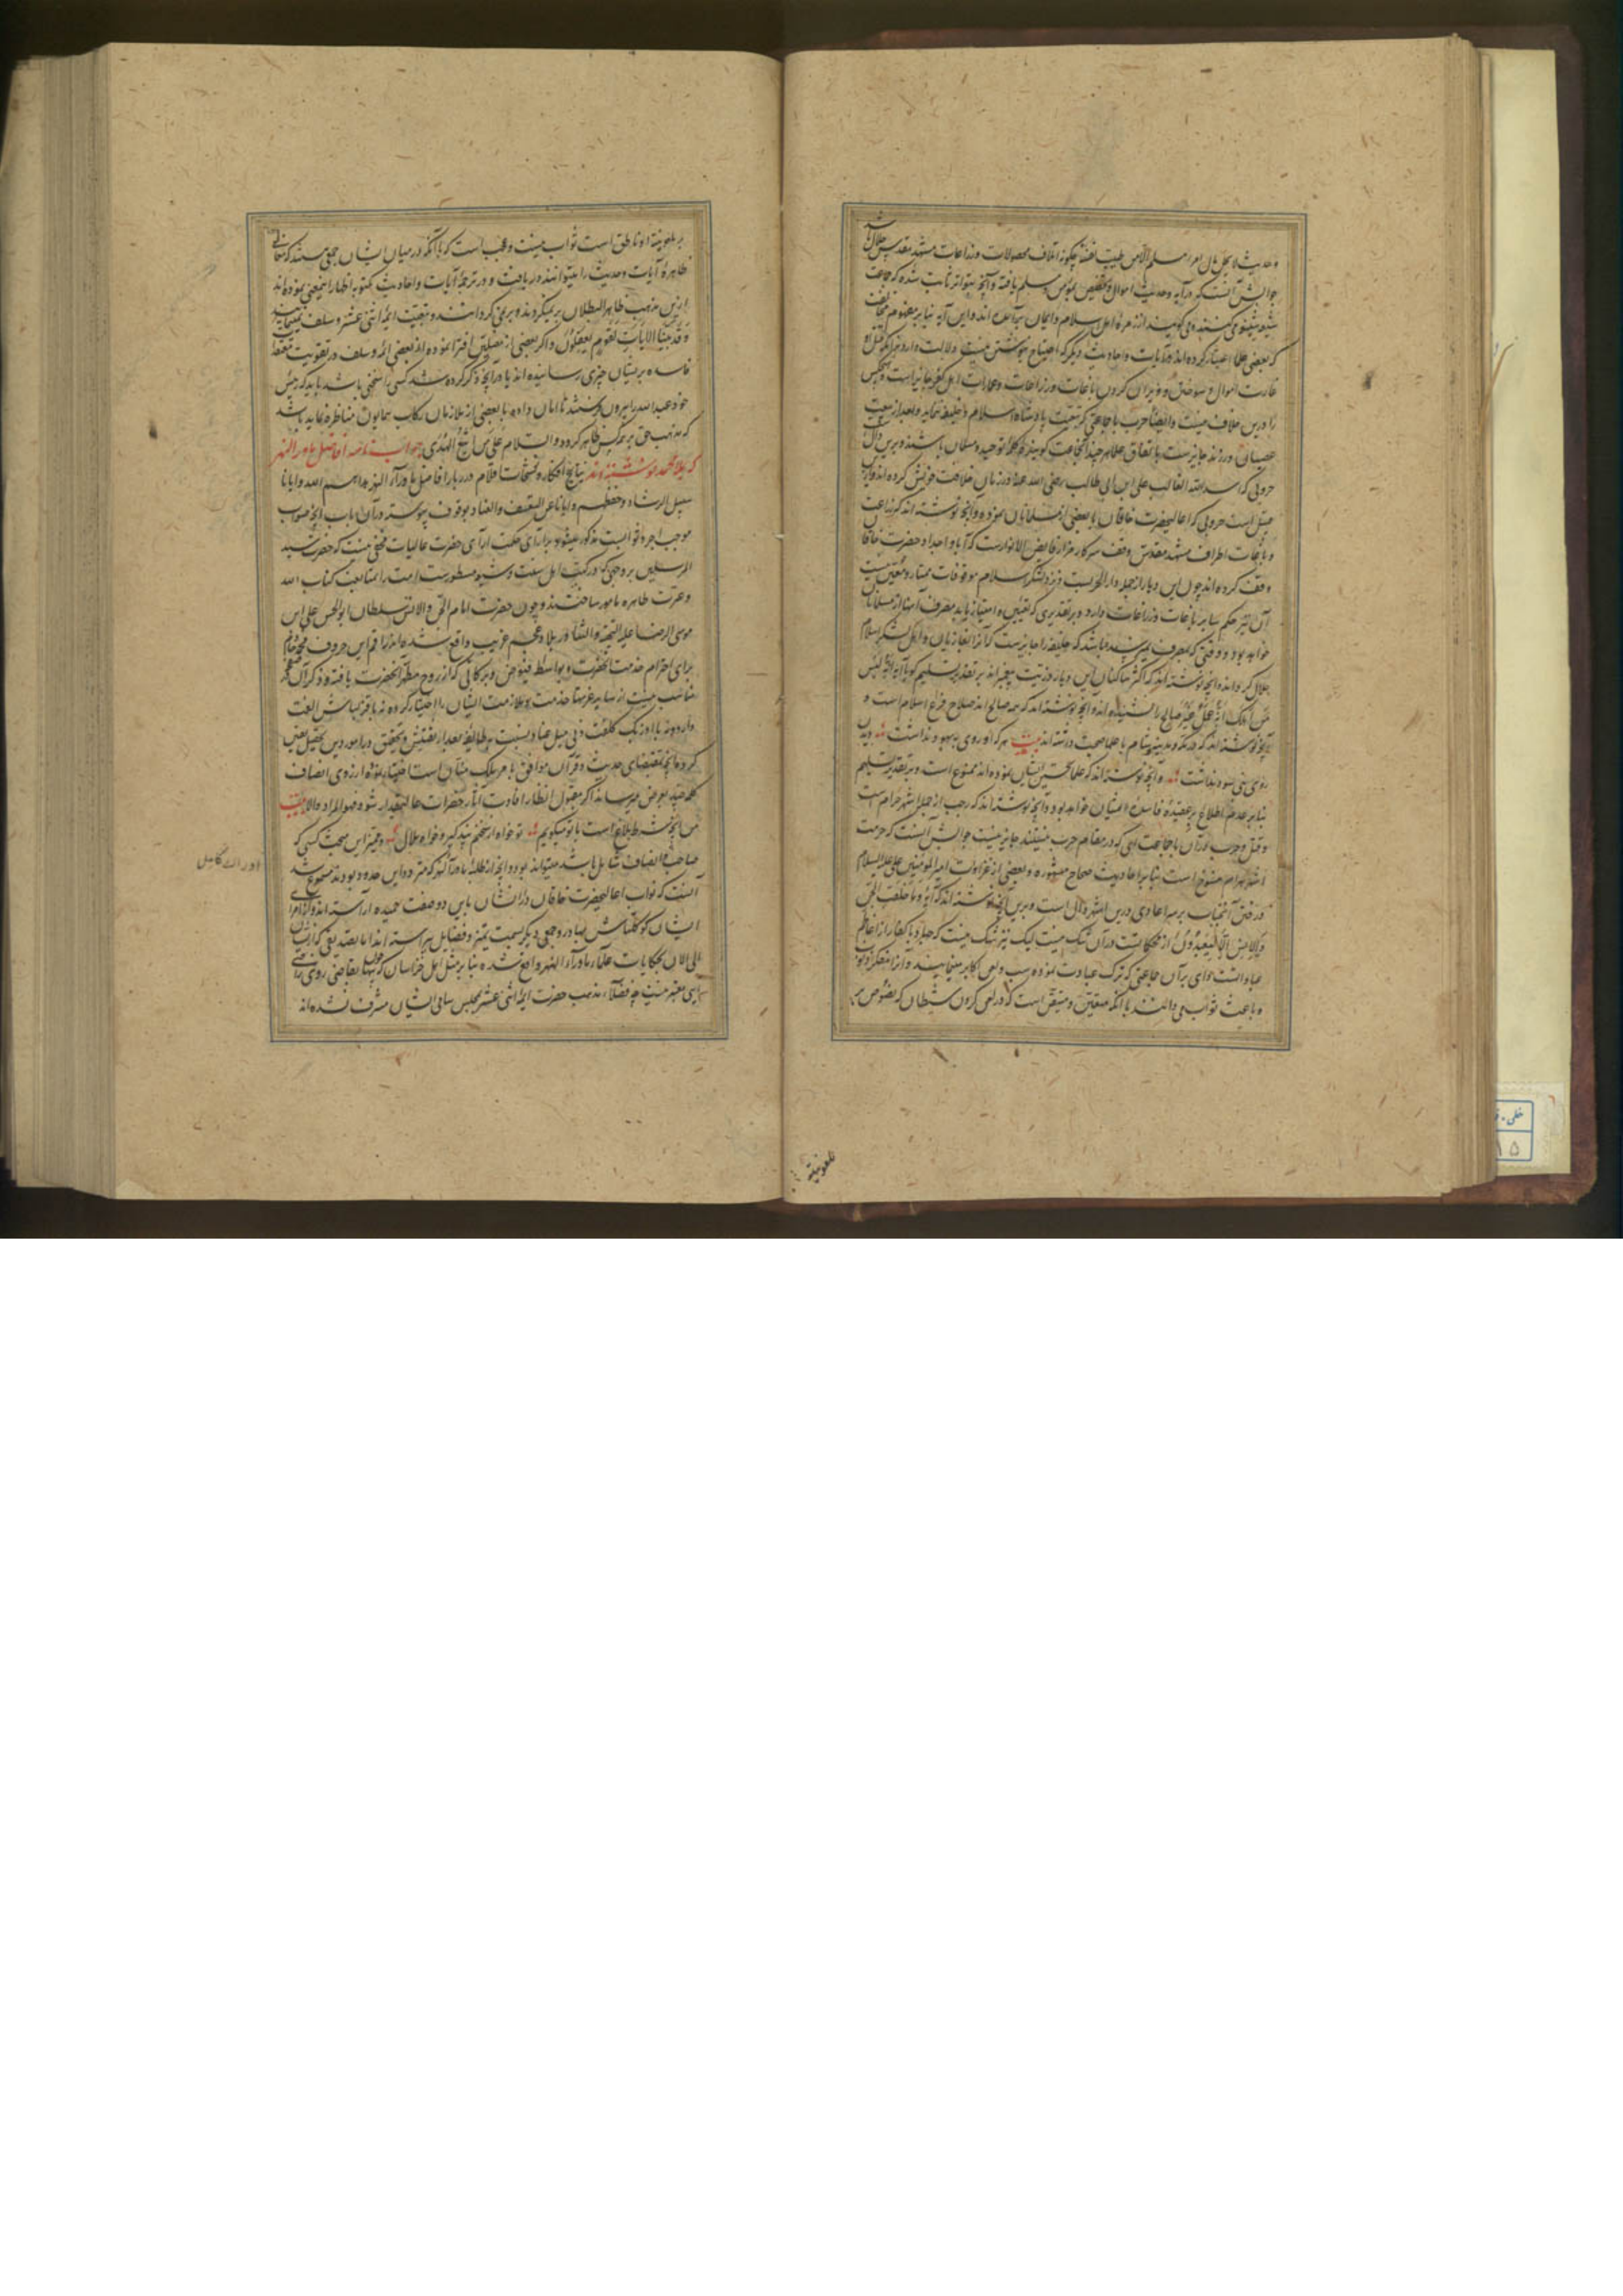 و حدیث لا یحل مال امرء مسلم الا من طیب نفسه چگونه اتلاف محصولات و زراعات مشهد مقدس حلال باشد
جوابش آنست که در آیه و حدیث اموال و تخصیص بمؤمن و مسلم یافته و آنچه بتواتر ثابت شده که جماعت
شیعه شنیعه می‌کنند و می‌گویند از زمره اهل اسلام و ایمان بیگانه‌اند و این آیه بنابر مفهوم مخالفت
که بعضی علما اعتبار کرده‌اند و آیات و احادیث دیگر که احتیاج بنوشتن نیست دلالت دارد بر آنکه قتل و
غارت اموال و سوختن و ویران کردن باغات و زراعات و عمارات اهل کفر جایز است و هیچکس
را درین خلاف نیست و ایضا حرب با جماعتی که تبعیت پادشاه اسلام و خلیفه ننمایند و بعد از بیعت
عصیان ورزند جایز است باتفاق علما هر چند آنجماعت گوینده کلمه توحید و مسلمان باشند و برین دال
حروبی که اسد الله الغالب علی ابن ابی طالب رضی الله عنه در زمان خلافت خویش کرده‌اند و ازین
قبیل است حروبی که اعالیحضرت خاقان با بعضی از مسلمانان نموده و آنچه نوشته‌اند که زراعت
و باغات اطراف مشهد مقدس وقف سرکار مزار فایض الانوار است که آبا و اجداد حضرت خاقان
وقف کرده‌اند چون این دیار از جمله دار الحربست و نزد لشکر اسلام موقوفات ممتاز و معین نیست
آن نیز حکم سایر باغات و زراعات دارد و بر تقدیری که تعین و امتیاز یابد مصرف آنها از مسلمانان
خواهد بود و وقتی که بمصرف نمیرسیده باشد که خلیفه را جایز است که آنرا بغازیان و اهل لشکر اسلام
حلال گرداند و آنچه نوشته‌اند که اکثر ساکنان این دیار ذریت پیغمبراند بر تقدیر تسلیم گویا آیه انه لیس
من اهلک انه عمل غیر صالح را نشنیده‌اند و آنچه نوشته‌اند که همه صالح‌اند صلاح فرع اسلام است و
آنچه نوشته‌اند که در مکه و مدینه و شام با علما صحبت داشته‌اند بیت هر که او روی به بهبود نداشت دیدن
روی نبی سود نداشت و آنچه نوشته‌اند که علما تحسین ایشان نموده‌اند ممنوع است و بر تقدیر تسلیم
بنابر عدم اطلاع بر عقیده فاسده ایشان خواهد بود و آنچه نوشته‌اند که رجب از جمله اشهر حرام است
و قتل و حرب در آن با جماعتی که در مقام حرب نیستند جایز نیست جوابش آنست که حرمت
اشهر حرام منسوخ است بنابر احادیث صحاح مشهوره و بعضی از غزوات امیر المؤمنین علی علیه السلام
و رفتن آنجناب بر سر اعادی درین اشهر دال است و برین آنچه نوشته‌اند که آیه و ما خلقت الجن
و الانس الا لیعبدون از محکماتست در آن شک نیست لیک نیز شک نیست که جهاد با کفار از اعاظم
عبادات است وای بر آن جماعتی که ترک عبادت نموده سب و لعن اکابر مینمایند و آنرا متضمن ثواب
و باعث ثواب می‌دانند با آنکه متعین و متیقن است که در لعن کردن شیطان که نصوص بر
بملعونیة
بر ملعونیة او ناطق است ثواب نیست و عجب است که با آنکه در میان ایشان جمعی هستند که معانی
ظاهره آیات و حدیث را میتوانند دریافت و در ترجمه آیات و احادیث مکتوبه اظهار اینمعنی نموده‌اند
ازین مذهب ظاهر البطلان بر نمیگردند و بر نمی‌گردانند و تبعیت ائمه اثنی عشر و سلف نمینمایند
و قد بینا الآیات لقوم یعقلون و اگر بعضی از مضلین افترا نموده‌اند بعضی ائمه و سلف در تقویت معتقد
فاسده پریشان چیزی رسانیده‌اند یا در آنچه ذکر کرده شد کسی را سخنی باشد باید که رجس
خود عبدالله را بیرون فرستند تا امان داده با بعضی از ملازمان رکاب همایون مناظره نماید باشد
که مذهب حق بر همه کس ظاهر گردد و السلام علی من اتبع الهدی جواب نامه افاضل ماوراء النهر
که ملا محمد نوشته‌اند نتایج افکار و نسخات اقلام در ربار افاضل ماوراء النهر هداهم الله و ایانا
سبیل الرشاد و حفظهم و ایانا عن التعسف و العناد بوقوف پیوسته در آن باب آنچه صواب
موجب اجر و ثوابست مذکور میشود بر آرای حکمت آرای حضرت عالیات مخفی نیست که حضرت سید
المرسلین بر وجهی که در کتب اهل سنت و شیعه مسطورست امت را بمتابعت کتاب الله
و عترت طاهره مامور ساختند و چون حضرت امام الجن و الانس سلطان ابوالحسن علی ابن
موسی الرضا علیه التحیة و الثنا در بلاد عجم غریب واقع شده‌اند راقم این حروف محمد خادم
برای احترام خدمت آنحضرت و بواسطه فیوض و برکاتی که از روح مطهر آنحضرت یافته و ذکر آن
مناسب نیست از سایه عرشها خدمت و ملازمت ایشان را اختیار کرده نه با قزلباش الفت
دارد و نه با اوزبک کلفت فی میل عناد نسبت بهر طایفه بعد از تفتیش و تحقیق در امور دین تحصیل یقینی
کرده آنچه مقتضای حدیث و قرآن موافق با هر ملک منان است اختیار نموده از روی انصاف
کلمه چند بعرض میرساند اگر مقبول انظار افادت آثار حضرات عالیمقدار شود فهو المراد والا بیت
من آنچه شرط بلاغ است با تو میگویم تو خواه از سخنم پند گیر و خواه ملال و فقیر این صحبت کسی که
صاحب انصاف شامل باشد میتواند بود و آنچه از طلبه ماوراء النهر که متردد این حدود بودند مسموع شد
آنست که نواب اعالیحضرت خاقان ذی الشان باین دو صفت حمیده آراسته‌اند و از امرای
ایشان کوکلتاش بهادر و جمعی دیگر بسمت تمیز و فضایل پیراسته‌اند اما تصدیقی که از ایشان
الی الآن بحکایات علماء ماوراء النهر واقع شده بنابر مثل اهل خراسان که تنها بقاضی روی راضی
آیی معتبر نیست چه فضلاء مذهب حضرت ائمه اثنی عشر بمجلس سامی ایشان مشرف نشده‌اند